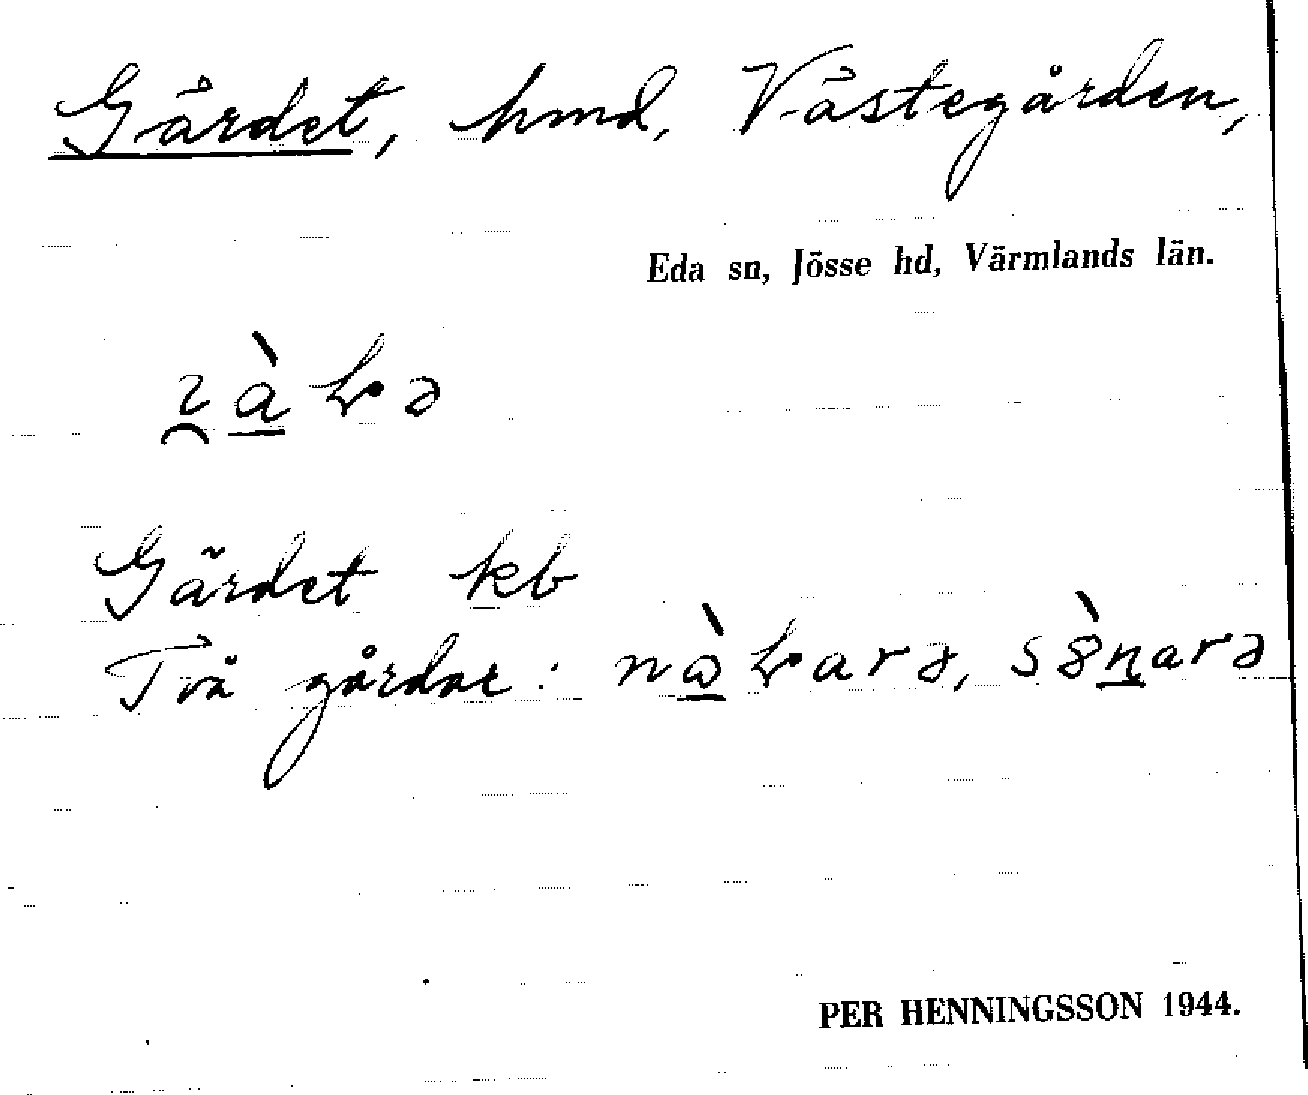 Gärdet, hmd, Västegården,
Eda sn, Jösse hd, Värmlands län.
Gärdet kb
Två gårdar:
PER HENNINGSSON 1944.